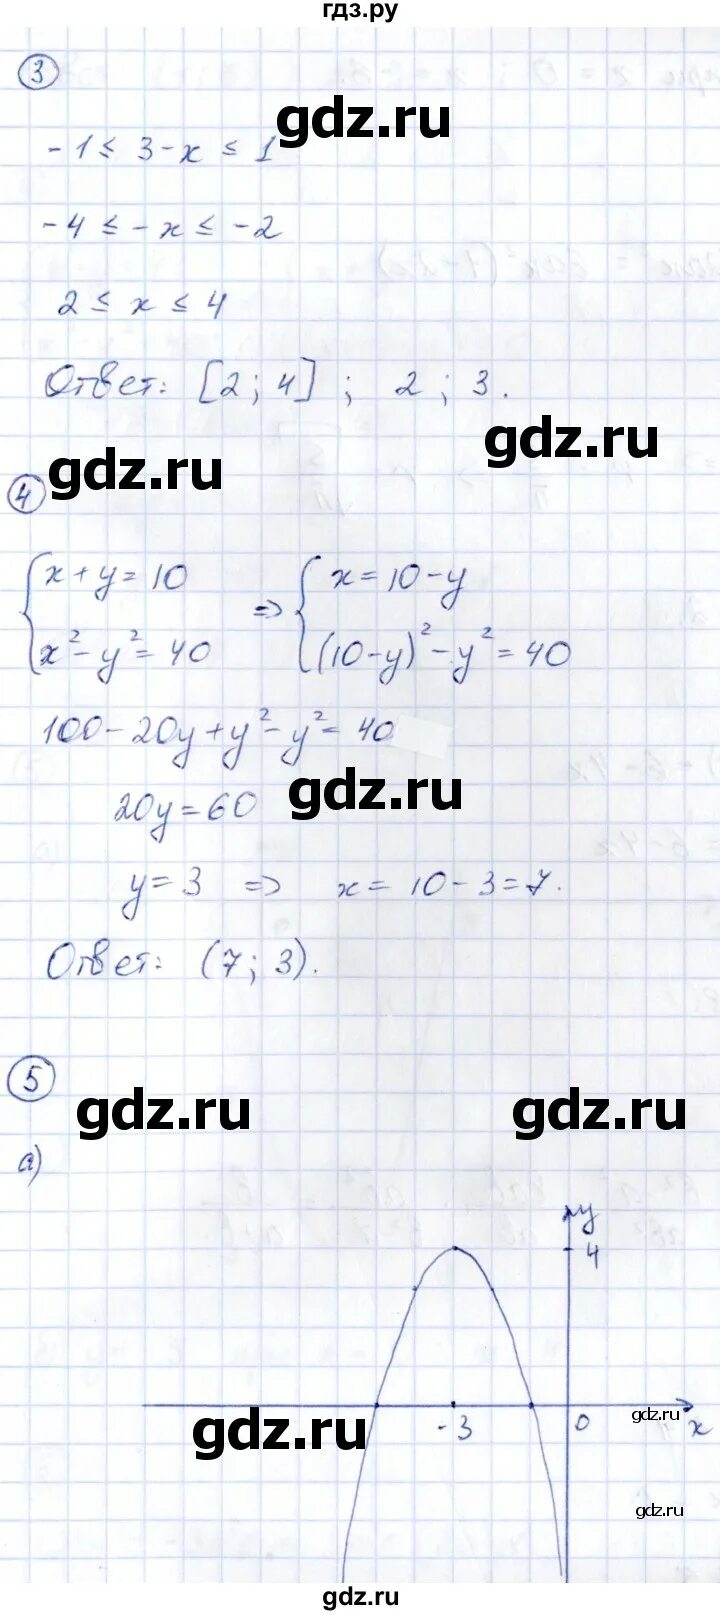 гдз.ру
3
gdz.ru
-1 ≤ 3-x ≤ 1
-4 ≤ -x ≤ -2
2 ≤ x ≤ 4
Ответ: [2; 4] ; 2 ; 3.
gdz.ru
gdz.ru
4
x+y=10 x=10-y
⇒
x²-y²=40 (10-y)²-y²=40
100-20y+y²-y²=40
20y=60
gdz.ru
y=3 ⇒ x=10-3=7.
Ответ: (7; 3).
5
gdz.ru
gdz.ru
а)
y
4
gdz.ru
gdz.ru
-3 0 x
gdz.ru
gdz.ru